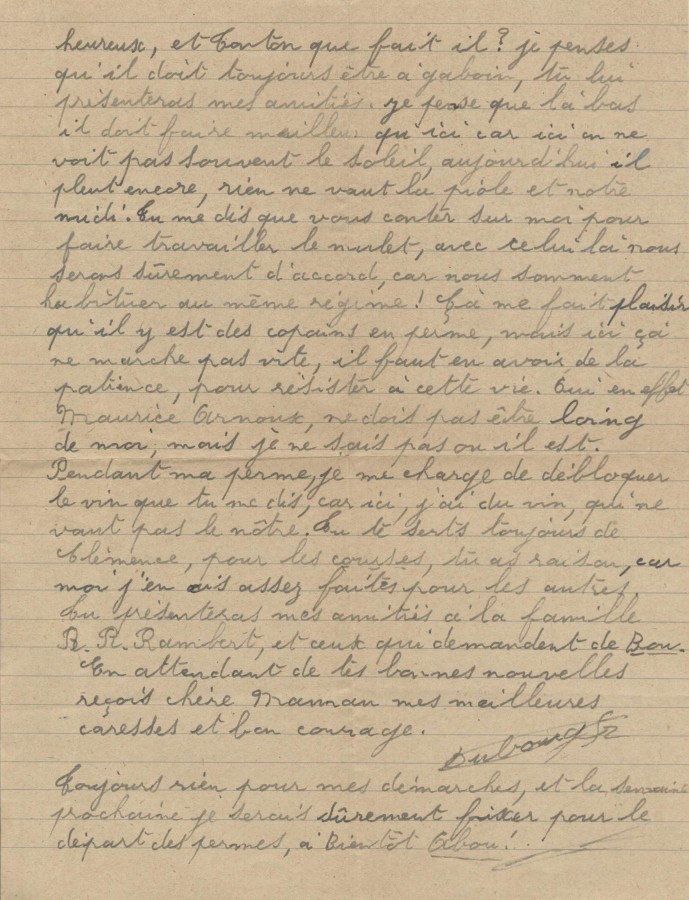 heureux, et Tonton que fait il? je penses
qu'il doit toujours être a gaboin, tu lui
présenteras mes amitiés. je pense que là bas
il doit faire meilleur qu'ici car ici on ne
voit pas souvent le soleil, aujourd'hui il
pleut encore, rien ne vaut la piôle et notre
midi. Tu me dis que vous conter sur moi pour
faire travailler le mulet, avec celui là nous
serons sûrement d'accord, car nous somment
habituer au même régime! Çà me fait plaisir
qu'il y est des copains en perme, mais ici çà
ne marche pas vite, il faut en avoir de la
patience, pour résister à cette vie. Oui en effet
Maurice Arnoux, ne dois pas être loing
de moi, mais je ne sais pas ou il est.
Pendant ma perme, je me charge de débloquer
le vin que tu me dis, car ici, j'ai du vin, qui ne
vaut pas le nôtre. Tu te serts toujours de
Clémence, pour les courses, tu as raison, car
moi j'en ais assez faîtes pour les autres.
Tu présenteras mes amitiés à la famille
R. R. Rambert, et ceux qui demandent de Bou.
En attendant de tes bonnes nouvelles
reçois chère Maman mes meilleures
caresses et bon courage.
Dubourg
Toujours rien pour mes démarches, et la semaine
prochaine je serais sûrement fixer pour le
départ des permes, à Bientôt Abou!